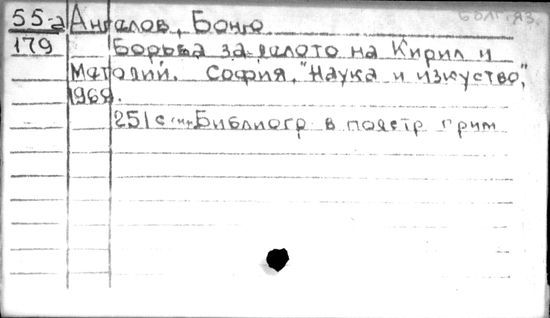 55-а Ангелов, Боню
болг. яз.
179 Борьба за делото на Кирил и
Методий. София, "Наука и изкуство,"
1969.
251 с. Библиогр в подстр прим